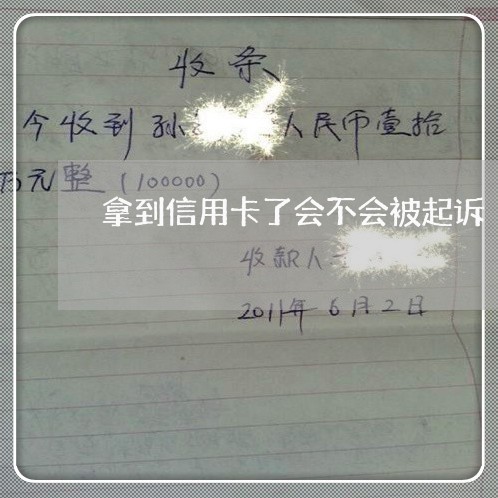 收条
今收到孙 人民币壹拾
万元整(100000)
拿到信用卡了会不会被起诉
收款人
2011年6月2日